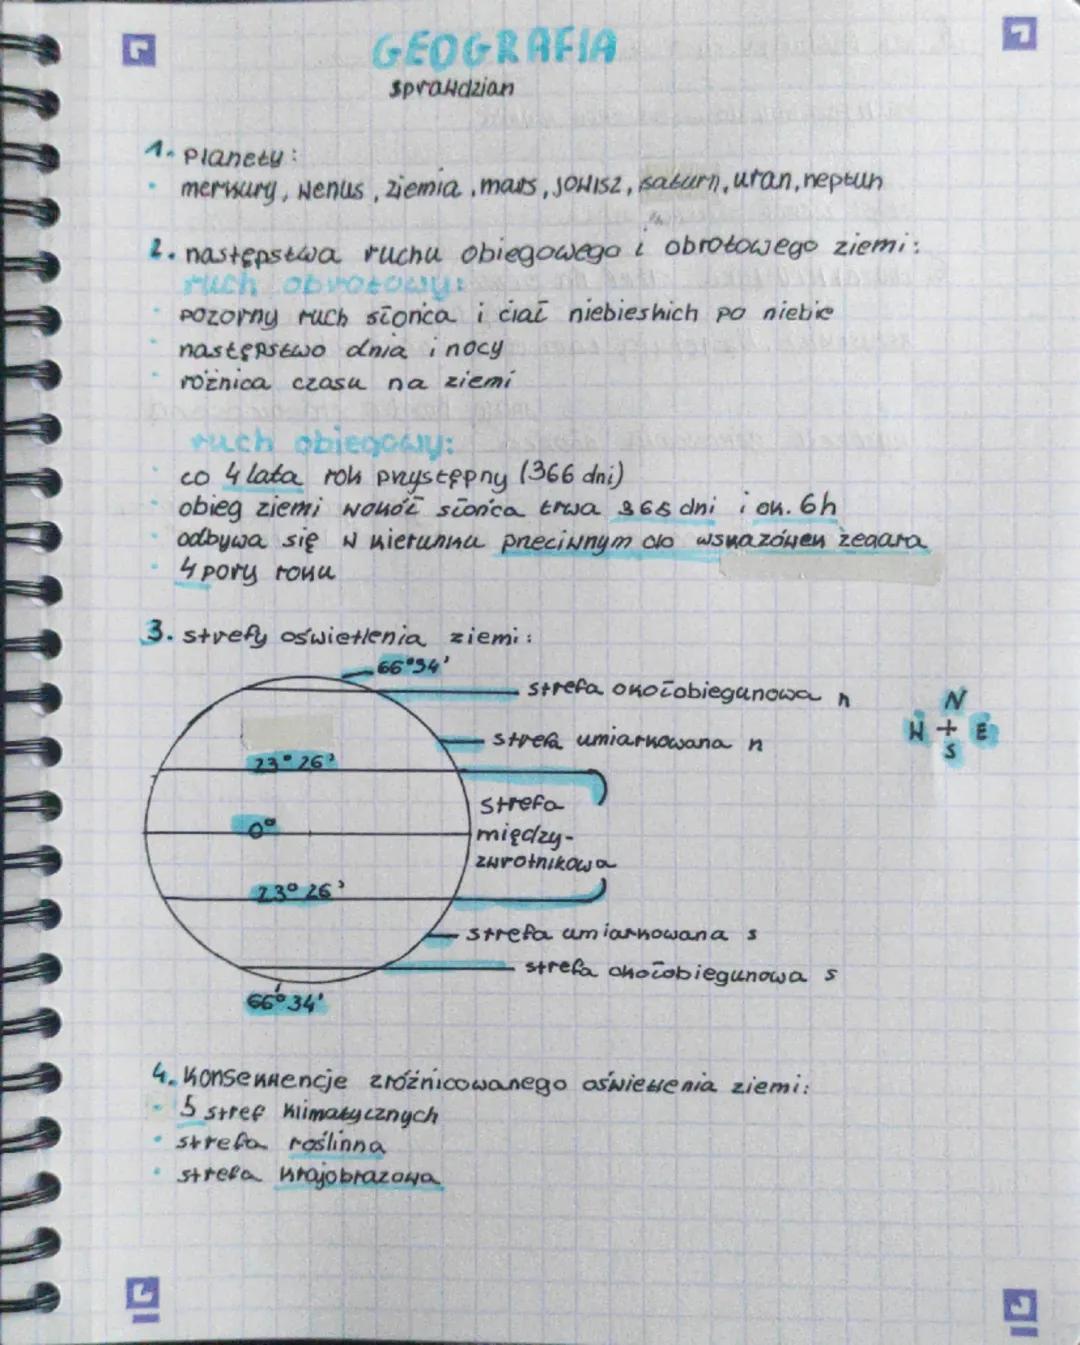 GEOGRAFIA
sprawdzian
1. Planety:
• merkury, wenus, ziemia, mars, jowisz, saturn, uran, neptun
2. następstwa ruchu obiegowego i obrotowego ziemi:
ruch obrotowy:
• pozorny ruch słońca i ciał niebieskich po niebie
• następstwo dnia i nocy
• różnica czasu na ziemi
ruch obiegowy:
• co 4 lata rok przystępny (366 dni)
• obieg ziemi wokół słońca trwa 365 dni i ok. 6h
• odbywa się w kierunku przeciwnym do wskazówek zegara
• 4 pory roku
3. strefy oświetlenia ziemi:
66°34'
strefa okołobiegunowa n
N
W + E
S
strefa umiarkowana n
23°26'
strefa
0°
między-
zwrotnikowa
23°26'
strefa umiarkowana s
strefa okołobiegunowa s
66°34'
4. Konsekwencje zróżnicowanego oświetlenia ziemi:
• 5 stref klimatycznych
• strefa roślinna
• strefa krajobrazowa